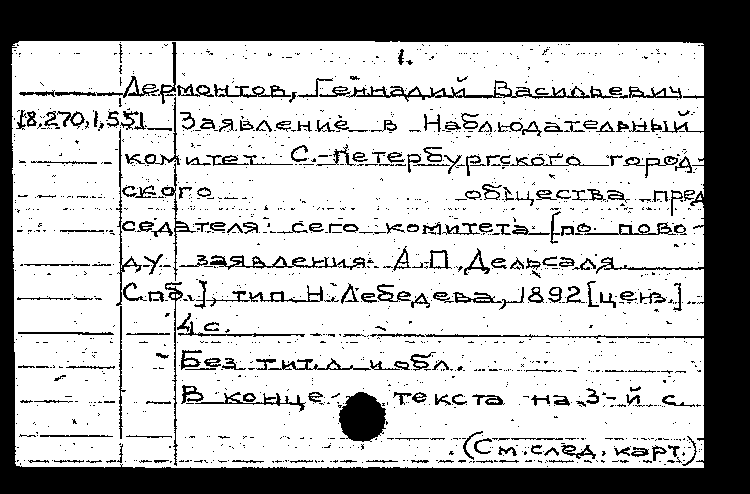 1.
Дермонтов, Геннадий Васильевич
18.270.1.551 Заявление в Наблюдательный
комитет С.-Петербургского город-
ского общества пред
седателя сего комитета [по пово-
ду заявления А.П. Дельсаля.
Спб.], тип. Н. Лебедева, 1892 [ценз.]
4 с.
Без тит. л. и обл.
В конце текста на 3-й с.
(См. след. карт.)